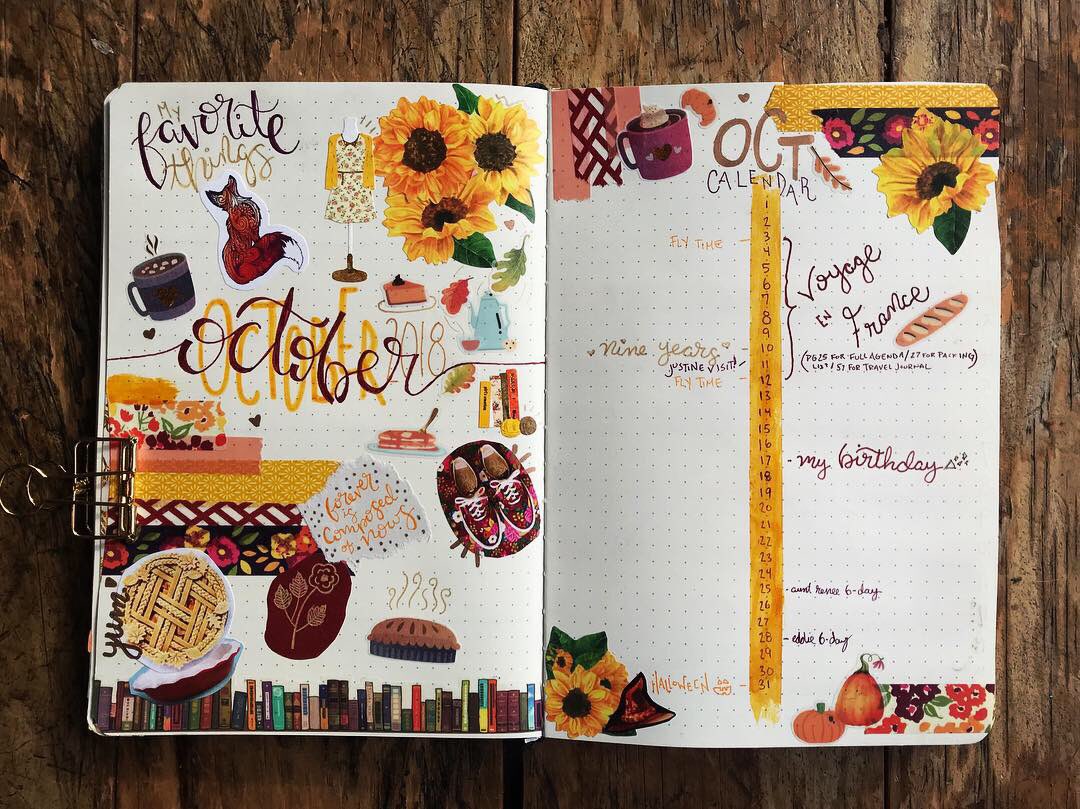 my
favorite
things
OCTOBER
october 2018
forever
is
composed
of nows
yum
OCT
CALENDAR
1
2
FLY TIME - 3
4
5
6
7
8
9
Voyage
EN
France
nine years 10
JUSTINE VISIT! 11
(PG 25 FOR FULL AGENDA/27 FOR PACKING
LIST/57 FOR TRAVEL JOURNAL)
FLY TIME - 12
13
14
15
16
17 - my birthday
18
19
20
21
22
23
24
25 - aunt renee b-day
26
27
28 - eddie b-day
29
30
HALLOWEEN - 31